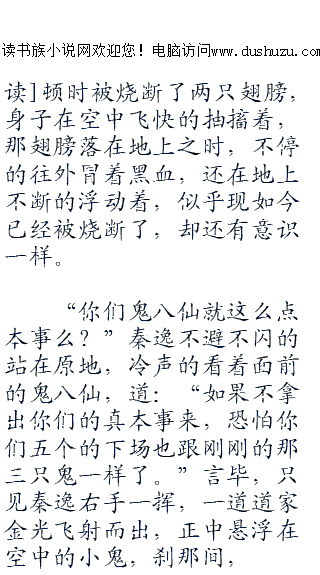 读书族小说网欢迎您！电脑访问www.dushuzu.com
读]顿时被烧断了两只翅膀，
身子在空中飞快的抽搐着，
那翅膀落在地上之时，不停
的往外冒着黑血，还在地上
不断的浮动着，似乎现如今
已经被烧断了，却还有意识
一样。
“你们鬼八仙就这么点
本事么？”秦逸不避不闪的
站在原地，冷声的看着面前
的鬼八仙，道：“如果不拿
出你们的真本事来，恐怕你
们五个的下场也跟刚刚的那
三只鬼一样了。”言毕，只
见秦逸右手一挥，一道道家
金光飞射而出，正中悬浮在
空中的小鬼，刹那间，